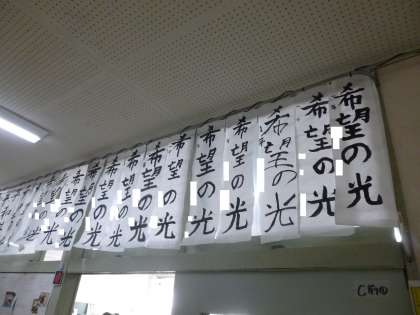 希望の光
希望の光
希望の光
希望の光
希望の光
希望の光
希望の光
希望の光
希望の光
希望の光